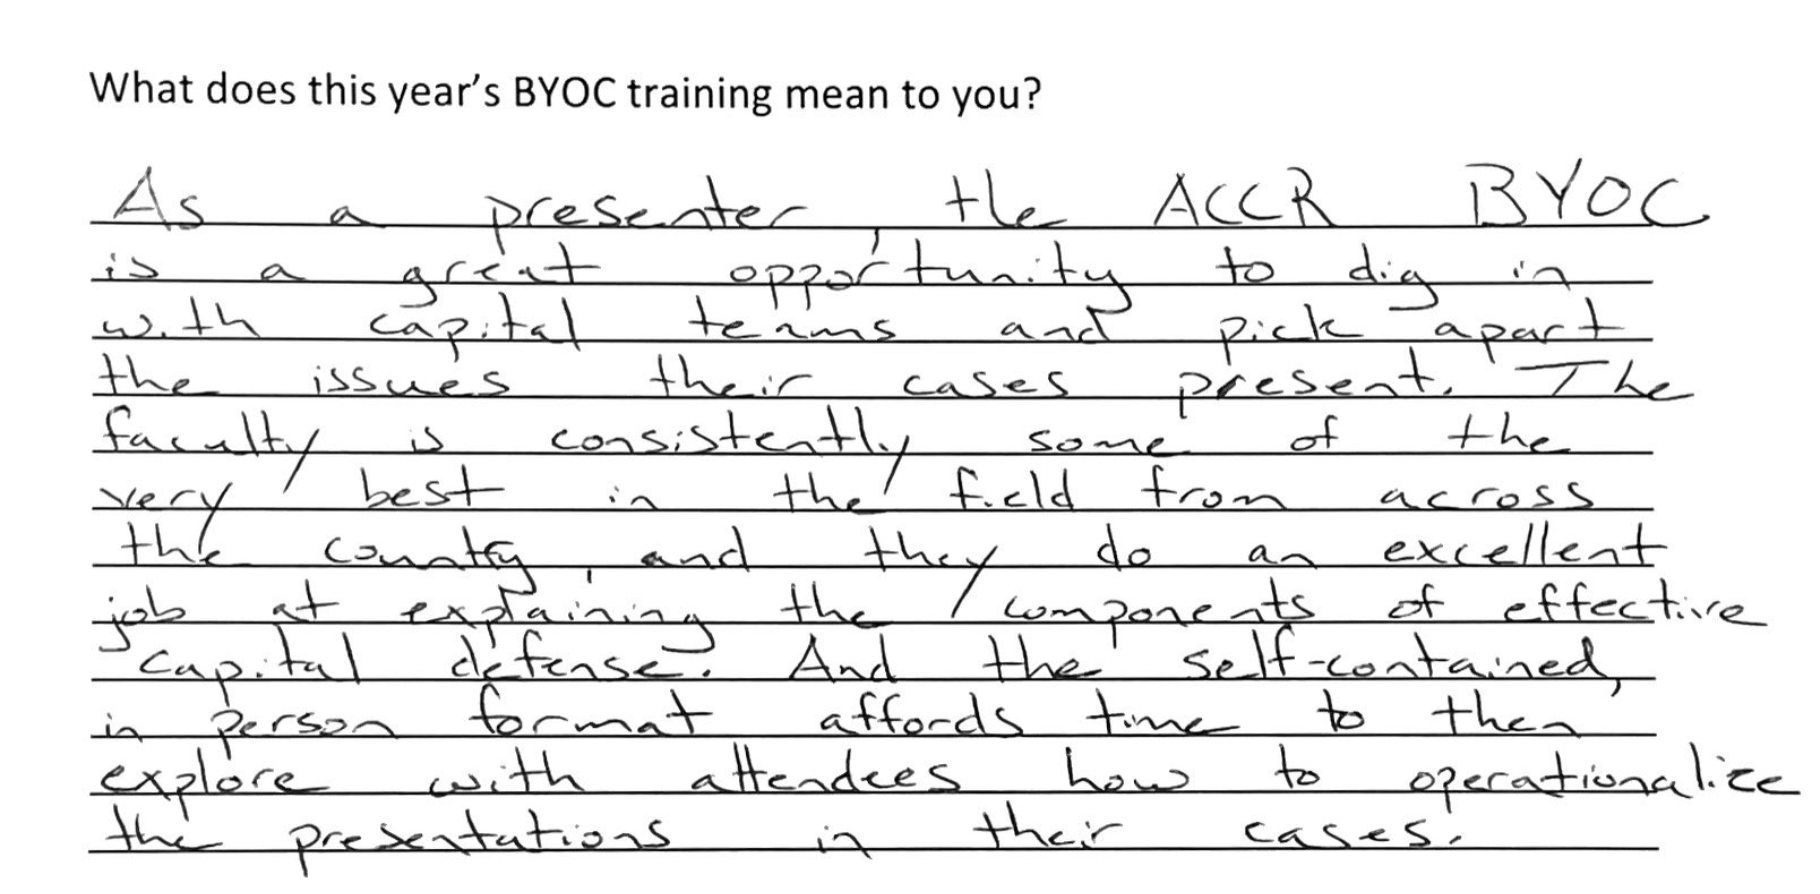 What does this year's BYOC training mean to you?
As a presenter, the ACCR BYOC
is a great opportunity to dig in
with capital teams and pick apart
the issues their cases present. The
faculty is consistently some of the
very best in the field from across
the country, and they do an excellent
job at explaining the components of effective
capital defense. And the self-contained,
in person format affords time to then
explore with attendees how to operationalize
the presentations in their cases.